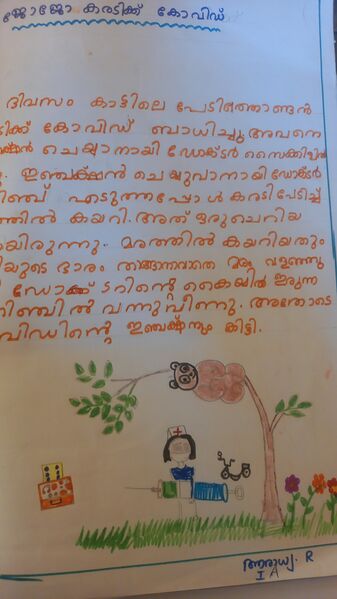 ജോജോ കരടിക്ക് കോവിഡ്
ദിവസം കാട്ടിലെ പേടിത്തൊണ്ടൻ
ടിക്ക് കോവിഡ് ബാധിച്ചു അവനെ
ക്ഷൻ ചെയ്യാനായി ഡോക്ടർ സൈക്കിളിൽ
ഇഞ്ചക്ഷൻ ചെയ്യുവാനായി ഡോക്ടർ
ിഞ്ച് എടുത്തപ്പോൾ കരടി പേടിച്ച്
ത്തിൽ കയറി. അത് ഒരു ചെറിയ
യിരുന്നു. മരത്തിൽ കയറിയതും
ിയുടെ ഭാരം താങ്ങാനാവാതെ മരം വളഞ്ഞു
ഡോക്ടറിന്റെ കൈയിൽ ഇരുന്ന
ിഞ്ചിൽ വന്നു വീണു. അതോടെ
വിഡിന്റെ ഇഞ്ചക്ഷനും കിട്ടി.
ആരാധ്യ. R
I A